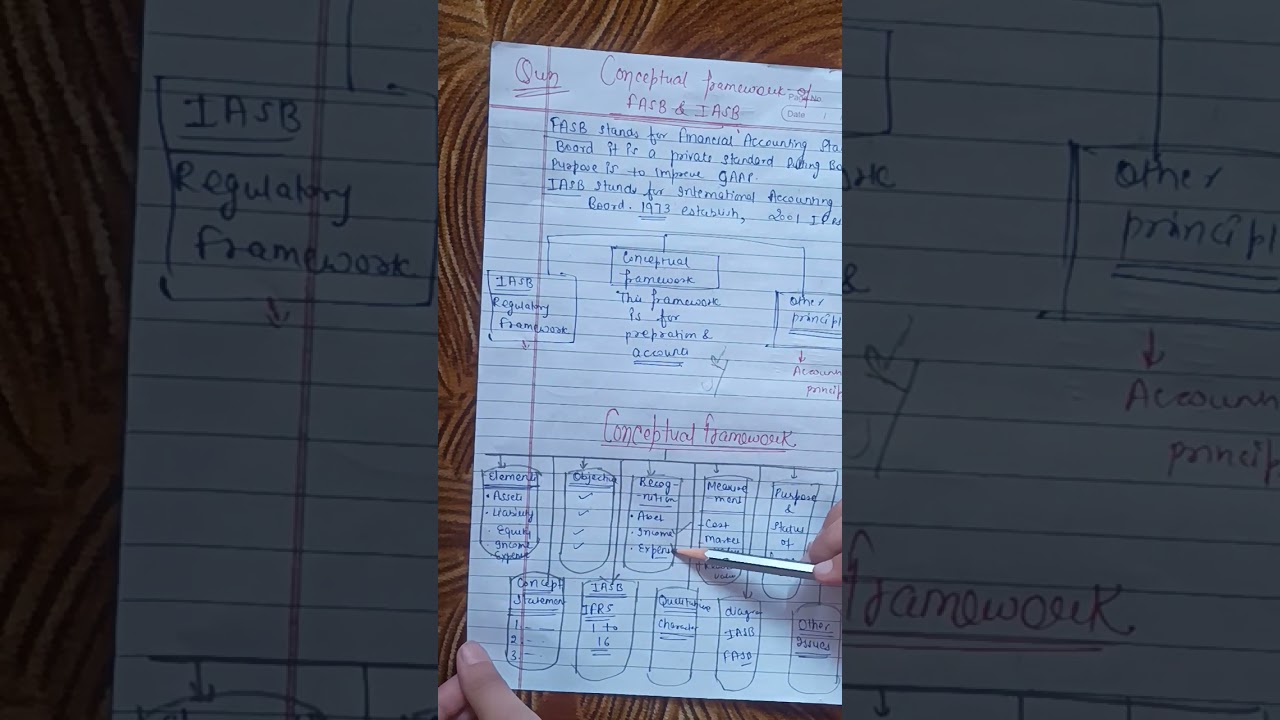 Qun
Conceptual framework of
FASB & IASB
Page No
Date
FASB stands for Financial Accounting Sta
Board it is a private standard Bo
Purpose is to improve GAAP.
IASB stands for International Accounting
Board. 1973 establish, 2001
IASB
Regulatory
framework
Conceptual
framework
This framework
is for
prepration &
account
Other
principl
Accoun
princip
Conceptual framework
Element
• Assets
• Liability
• Equity
Income
Expense
Objective
Recog-
nition
• Asset
• Income
• Expense
Measure
ment
- Cost
market
value
Purpose
&
Status
of
Concept
Statement
1. - -
2. - -
3. - -
IASB
IFRS
1 to
16
Qualitative
Character
diagr
IASB
FASB
Other
Issues
IASB
Regulatory
framework
Other
principl
&
Accoun
princip
framework